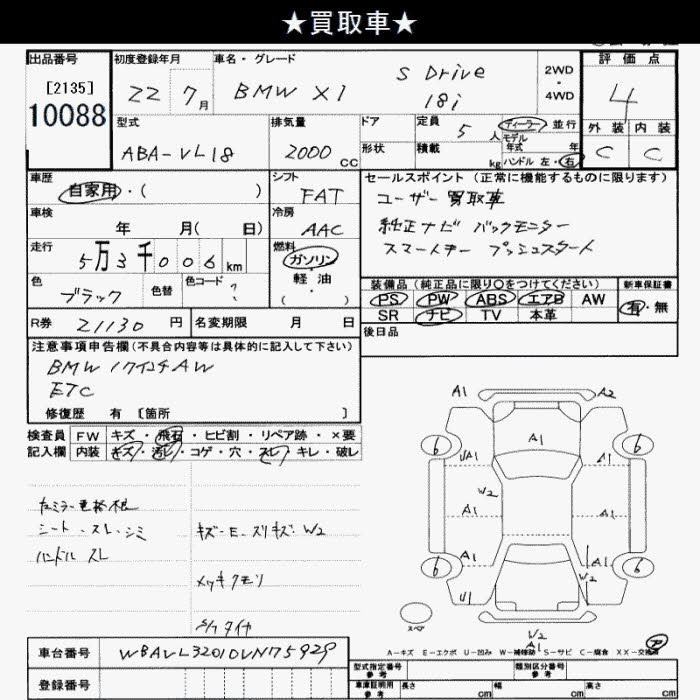 ★買取車★
出品番号 初度登録年月 車名・グレード 評価点
[2135]
10088
22 7月 BMW X1 S Drive 18i
2WD・4WD
4
型式 排気量 ドア 定員 5人 ディーラー 並行
モデル年式 年
形状 積載 kg ハンドル 左・右
外装 内装
C C
ABA-VL18 2000cc
車歴 シフト セールスポイント(正常に機能するものに限ります)
自家用・( ) FAT
ユーザー買取車
車検 冷房
年 月( 日) AAC
純正ナビ バックモニター
スマートキー プッシュスタート
走行 燃料
5万3千006km
ガソリン・軽油・( )
色 色替 色コード
ブラック ?
装備品(純正品に限り○をつけてください) 新車保証書
PS PW ABS エアB AW
SR ナビ TV 本革
有・無
R券 21130円 名変期限 月 日 後日品
注意事項申告欄(不具合内容等は具体的に記入して下さい)
BMW 17インチAW
ETC
修復歴 有 [箇所 ]
検査員 FW キズ・飛石・ヒビ割・リペア跡・×要
記入欄 内装 キズ・汚レ・コゲ・穴・スレ・キレ・破レ
シート スレ・シミ
ハンドル スレ
キズ・E・スリキズ・W2
メッキクモリ
A1 A2
6 A1 6
A1 A1
W2
A1 A1
A1 A1
6 W2 6
スペア
W2
A1
A-キズ E-エクボ U-凹み W-補修跡 S-サビ C-腐食 XX-交換済
ア
車台番号 WBAVL32010VN75929
登録番号
型式指定番号 参考 類別区分番号 参考
車庫証明用 参考 長さ cm 幅 cm 高さ cm